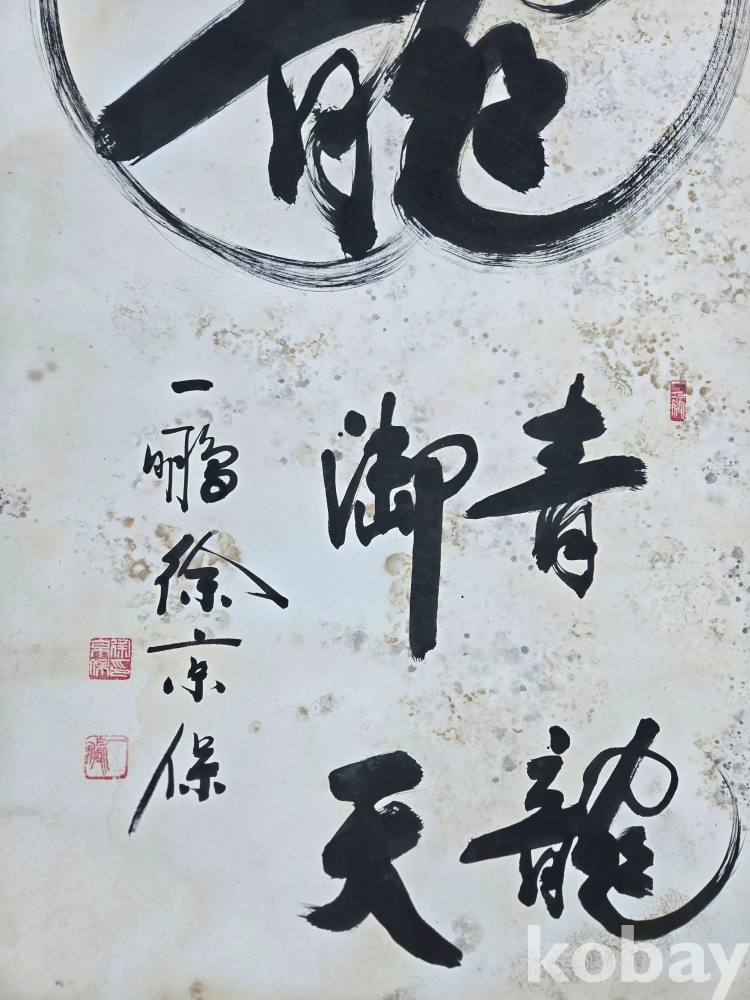 龍
青龍
御天
一鵬徐京保
kobay